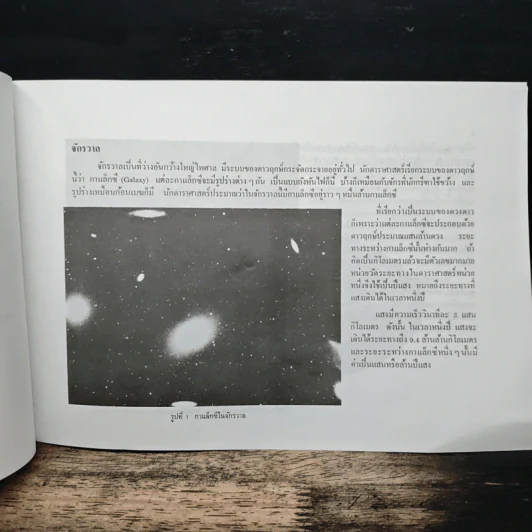 จักรวาล
จักรวาลเป็นที่ว่างอันกว้างใหญ่ไพศาล มีระบบของดาวฤกษ์กระจัดกระจายอยู่ทั่วไป นักดาราศาสตร์เรียกระบบของดาวฤกษ์
นี้ว่า กาแล็กซี่ (Galaxy) แต่ละกาแล็กซี่จะมีรูปร่างต่าง ๆ กัน เป็นแบบกังหันไฟก็มี บ้างก็เหมือนกับจักรที่นักกรีฑาใช้ขว้าง และ
รูปร่างเหมือนก้อนเมฆก็มี นักดาราศาสตร์ประมาณว่าในจักรวาลนี้มีกาแล็กซี่อยู่ราว ๆ หมื่นล้านกาแล็กซี่
ที่เรียกว่าเป็นระบบของดวงดาว
ก็เพราะว่าแต่ละกาแล็กซี่จะประกอบด้วย
ดาวฤกษ์ประมาณแสนล้านดวง ระยะ
ทางระหว่างกาแล็กซี่นั้นห่างกันมาก ถ้า
คิดเป็นกิโลเมตรแล้วจะมีตัวเลขมากมาย
หน่วยวัดระยะทางในดาราศาสตร์หน่วย
หนึ่งจึงใช้เป็นปีแสง หมายถึงระยะทางที่
แสงเดินได้ในเวลาหนึ่งปี
แสงมีความเร็ววินาทีละ 3 แสน
กิโลเมตร ดังนั้น ในเวลาหนึ่งปี แสงจะ
เดินได้ระยะทางถึง 9.4 ล้านล้านกิโลเมตร
และระยะระหว่างกาแล็กซี่หนึ่ง ๆ นั้นมี
ค่าเป็นแสนหรือล้านปีแสง
รูปที่ 1 กาแล็กซี่ในจักรวาล